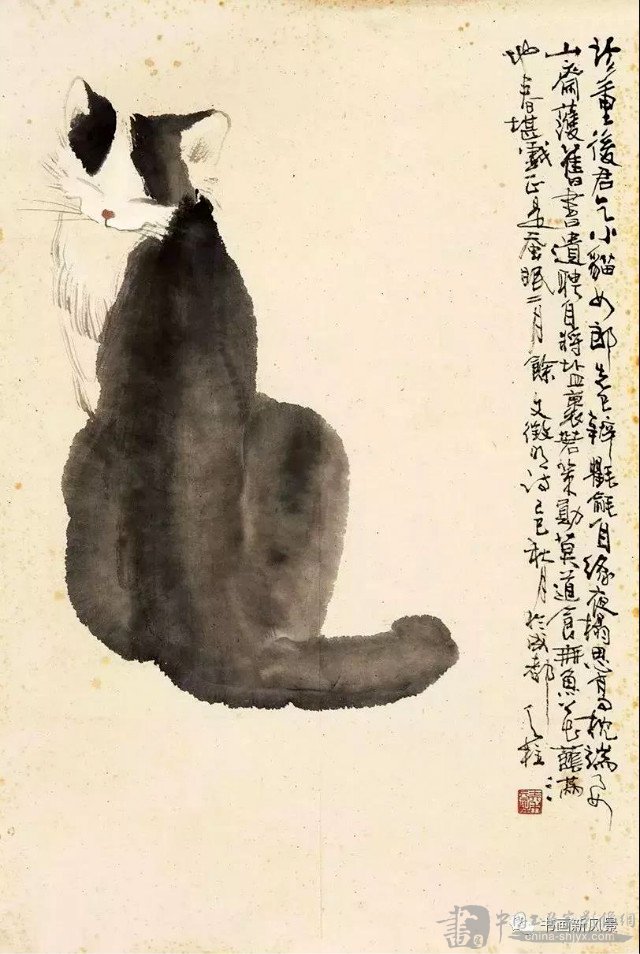 珍重從君乞小貓女郎先已辦氍毹自緣夜榻思高枕端要
山齋護舊書遣聘自將鹽裹箬策勳莫道食無魚花蔭滿
地春堪戲正是蠶眠二月餘 文徵明詩 己巳秋月於成都
書
书画新风景
china-shjyx.com